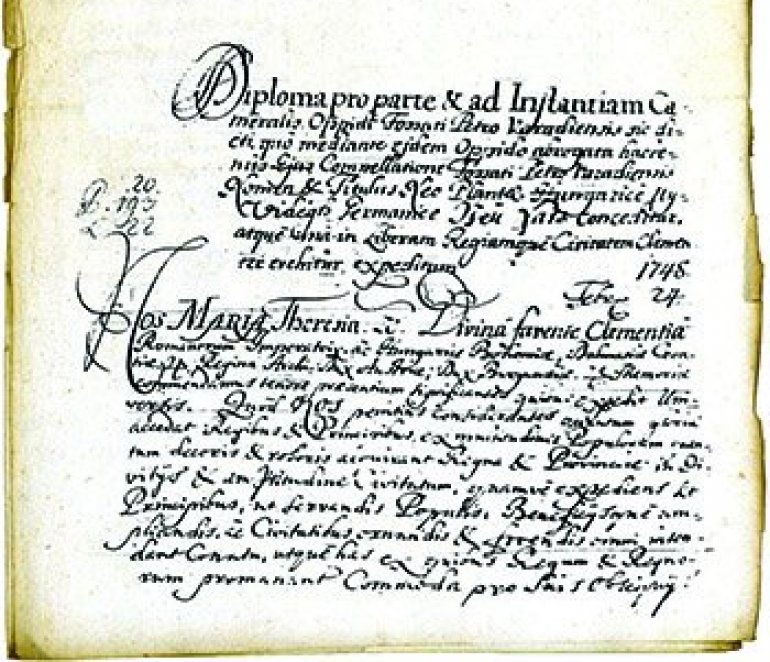 Diploma pro parte & ad Instantiam Ca-
meralis Oppidi Fossati Petro Varadiensis sic di-
cti, quo mediante ejdem Oppido abrogata hacte-
nus Ejus Compellatione Fossati Petro Varadiensis
Nomen & Titulus Neo Plantae Hungarice Uy-
Videgh Germanice Neu Satz Conceditur,
atque Una in Liberam Regiamque Civitatem Clemen-
ter erehitur expeditum
1748
Febr 24.
20.
P. 193
L. 122
Nos MARIA Theresia &c Divina favente Clementia
Romanorum Imperatrix, ac Hungariae Bohemiae, Dalmatiae Croa-
Regina Archi Dux Austriae; Dux Burgundiae &c Memoriae
commendamus tenore praesentium significantes quibus expedit Uni-
versis. Quod Nos penitius Considerantes quantum
accedat Regibus & Principibus, ex Populorum quan-
tum decoris & roboris acquirant Regna & Provinciae, in Di-
vitijs & amplitudine Civitatum, expediens
Principibus, ut servandis Populis, Beneficijs am-
pliandis, ac Civitatibus, ornandis & fovendis omni inten-
dant Conatu, utque has ex quibus Regum & Regno-
rum promanant Commoda pro